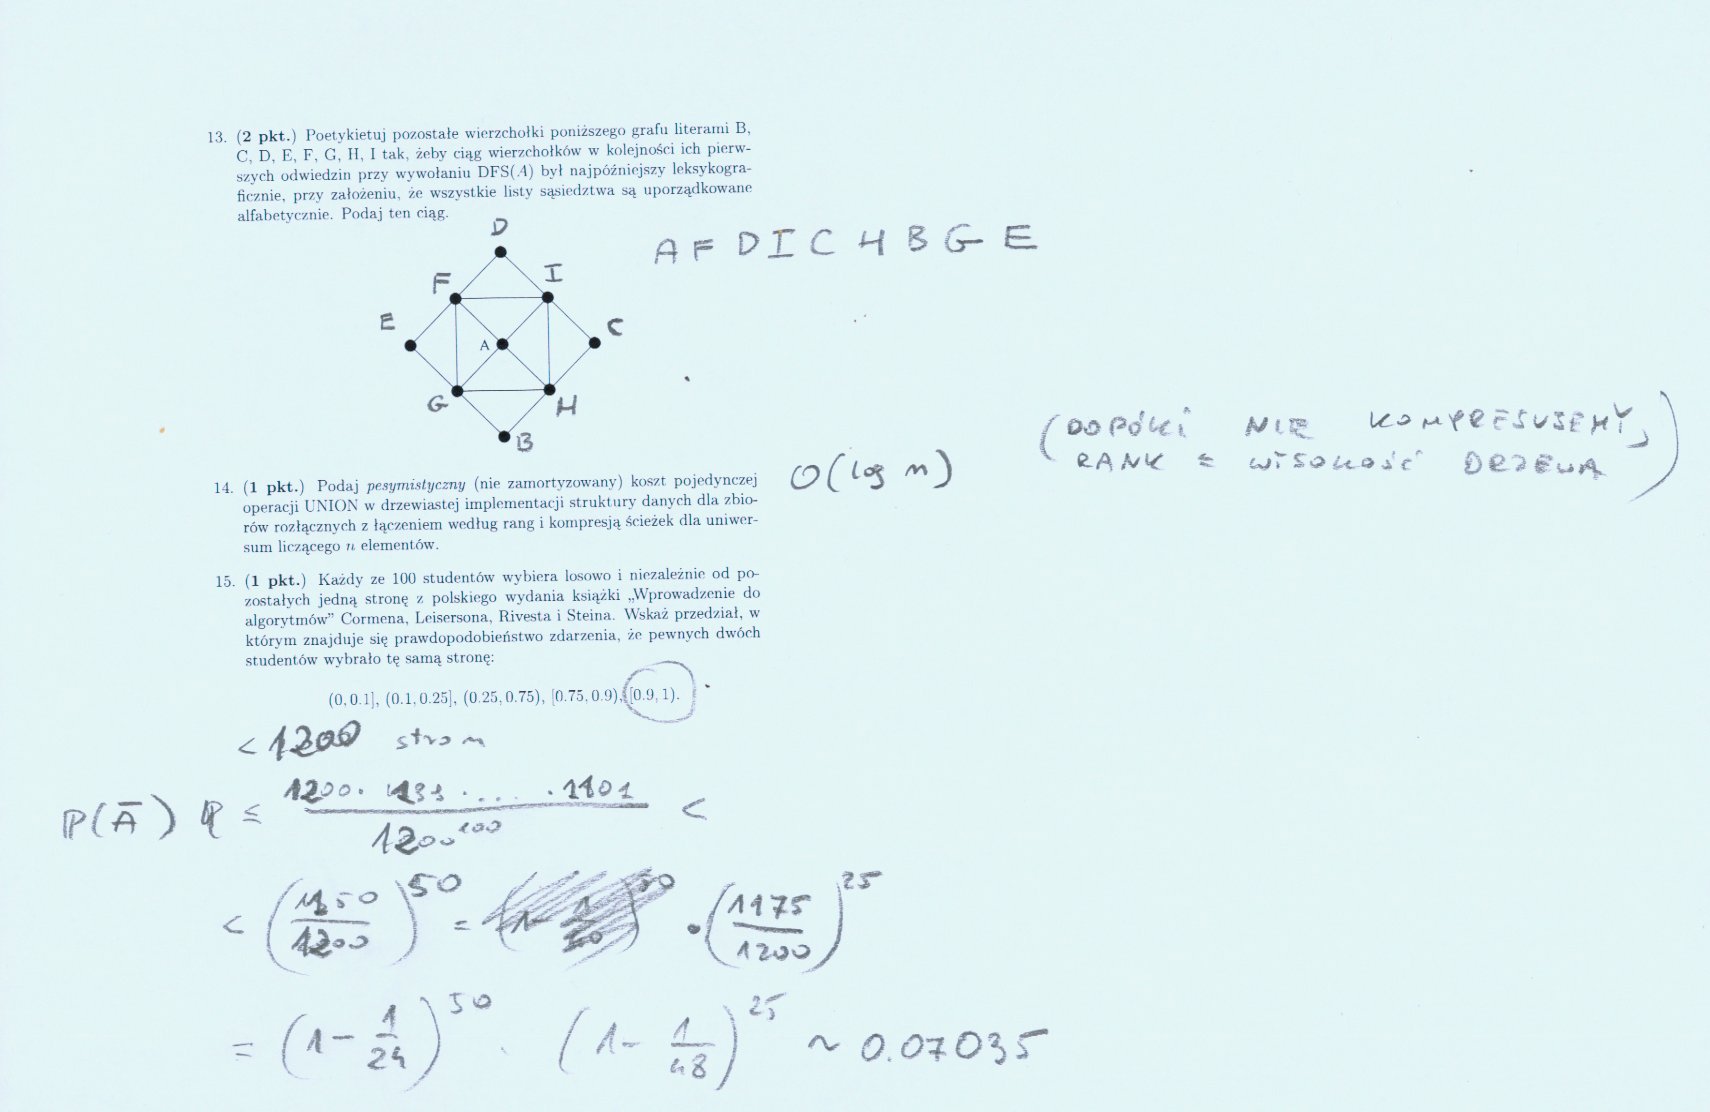 13. (2 pkt.) Poetykietuj pozostałe wierzchołki poniższego grafu literami B,
C, D, E, F, G, H, I tak, żeby ciąg wierzchołków w kolejności ich pierw-
szych odwiedzin przy wywołaniu DFS(A) był najpóźniejszy leksykogra-
ficznie, przy założeniu, że wszystkie listy sąsiedztwa są uporządkowane
alfabetycznie. Podaj ten ciąg.
A F D I C H B G E
D
F I
E C
A
G H
B
14. (1 pkt.) Podaj pesymistyczny (nie zamortyzowany) koszt pojedynczej
operacji UNION w drzewiastej implementacji struktury danych dla zbio-
rów rozłącznych z łączeniem według rang i kompresją ścieżek dla uniwer-
sum liczącego n elementów.
O(log n)
(DOPÓKI NIE KOMPRESUJEMY,
RANK = WYSOKOŚĆ DRZEWA)
15. (1 pkt.) Każdy ze 100 studentów wybiera losowo i niezależnie od po-
zostałych jedną stronę z polskiego wydania książki „Wprowadzenie do
algorytmów” Cormena, Leisersona, Rivesta i Steina. Wskaż przedział, w
którym znajduje się prawdopodobieństwo zdarzenia, że pewnych dwóch
studentów wybrało tę samą stronę:
(0, 0.1], (0.1, 0.25], (0.25, 0.75), [0.75, 0.9), [0.9, 1).
< 1200 stron
P(Ā) ≤ 1200 · 1199 · .... · 1101 <
1200^100
< (1150/1200)^50 = · (1175/1200)^25
= (1 - 1/24)^50 · (1 - 1/48)^25 ~ 0.07035